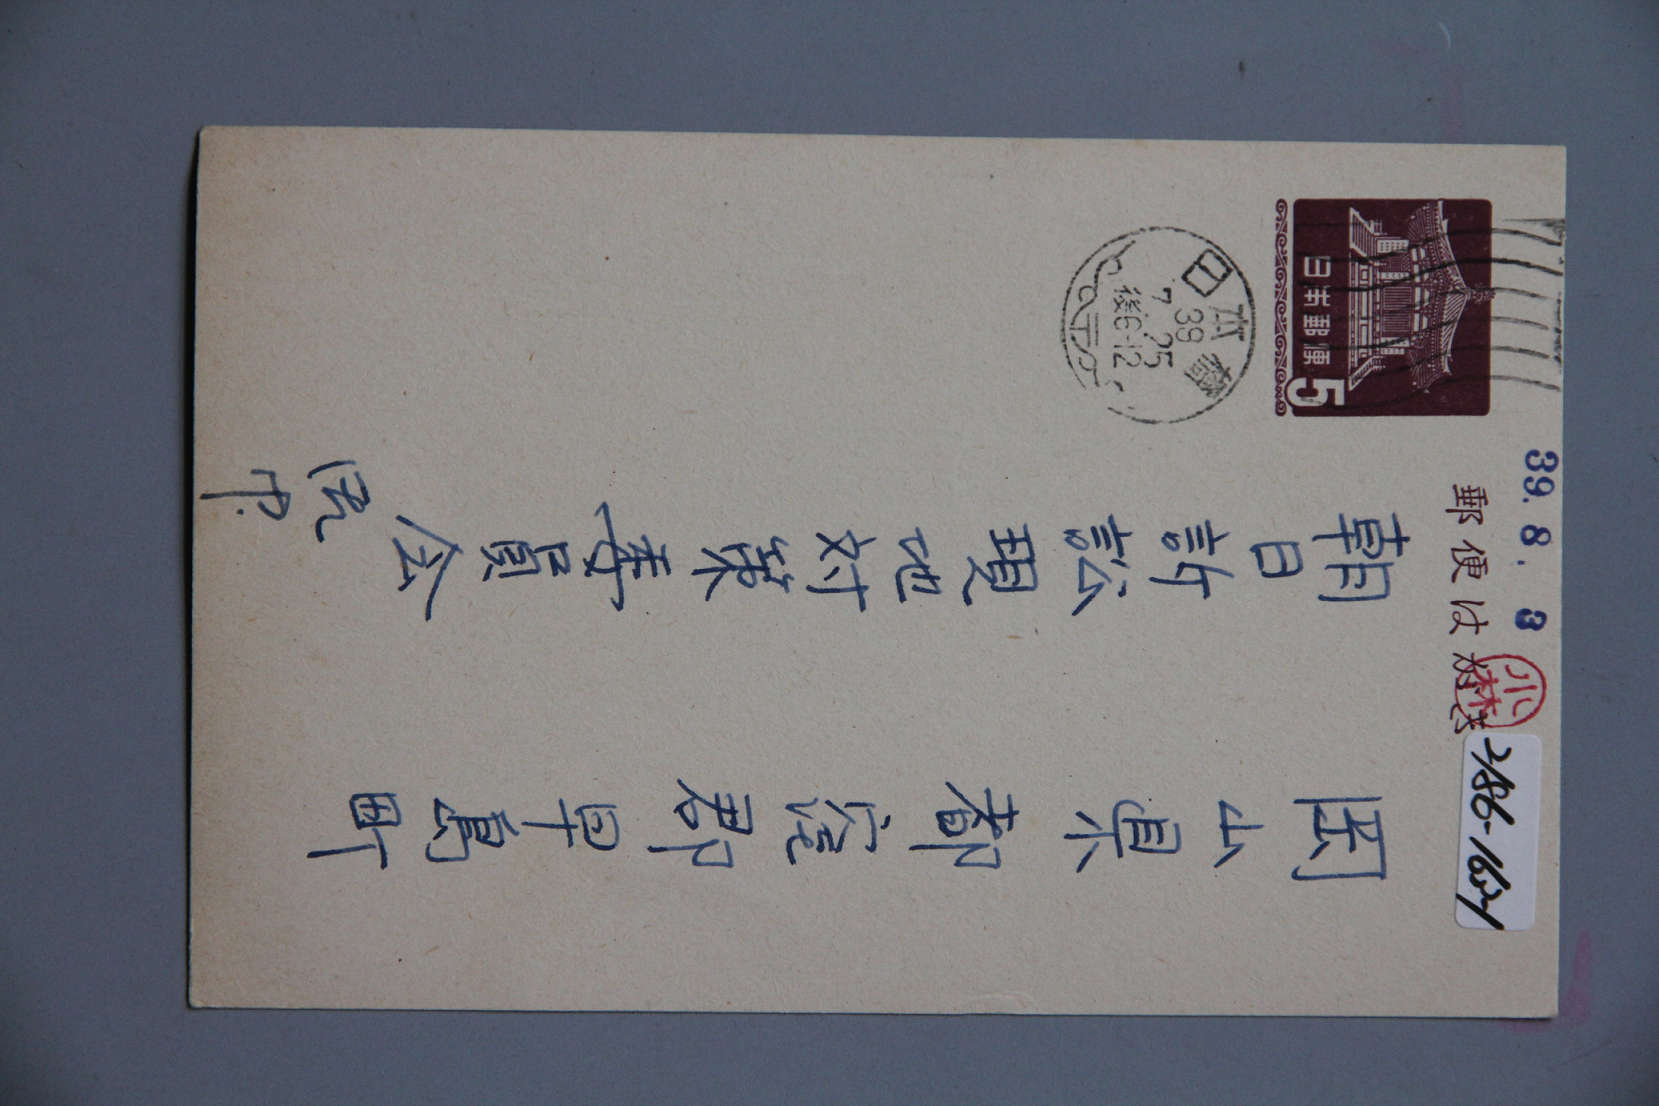 郵便はがき
39. 8. 3
小林
2186-1621
日本郵便
5
日本橋
39
7. 25
後6-12
岡山県都窪郡早島町
朝日訴訟現地対策委員会
氏
中